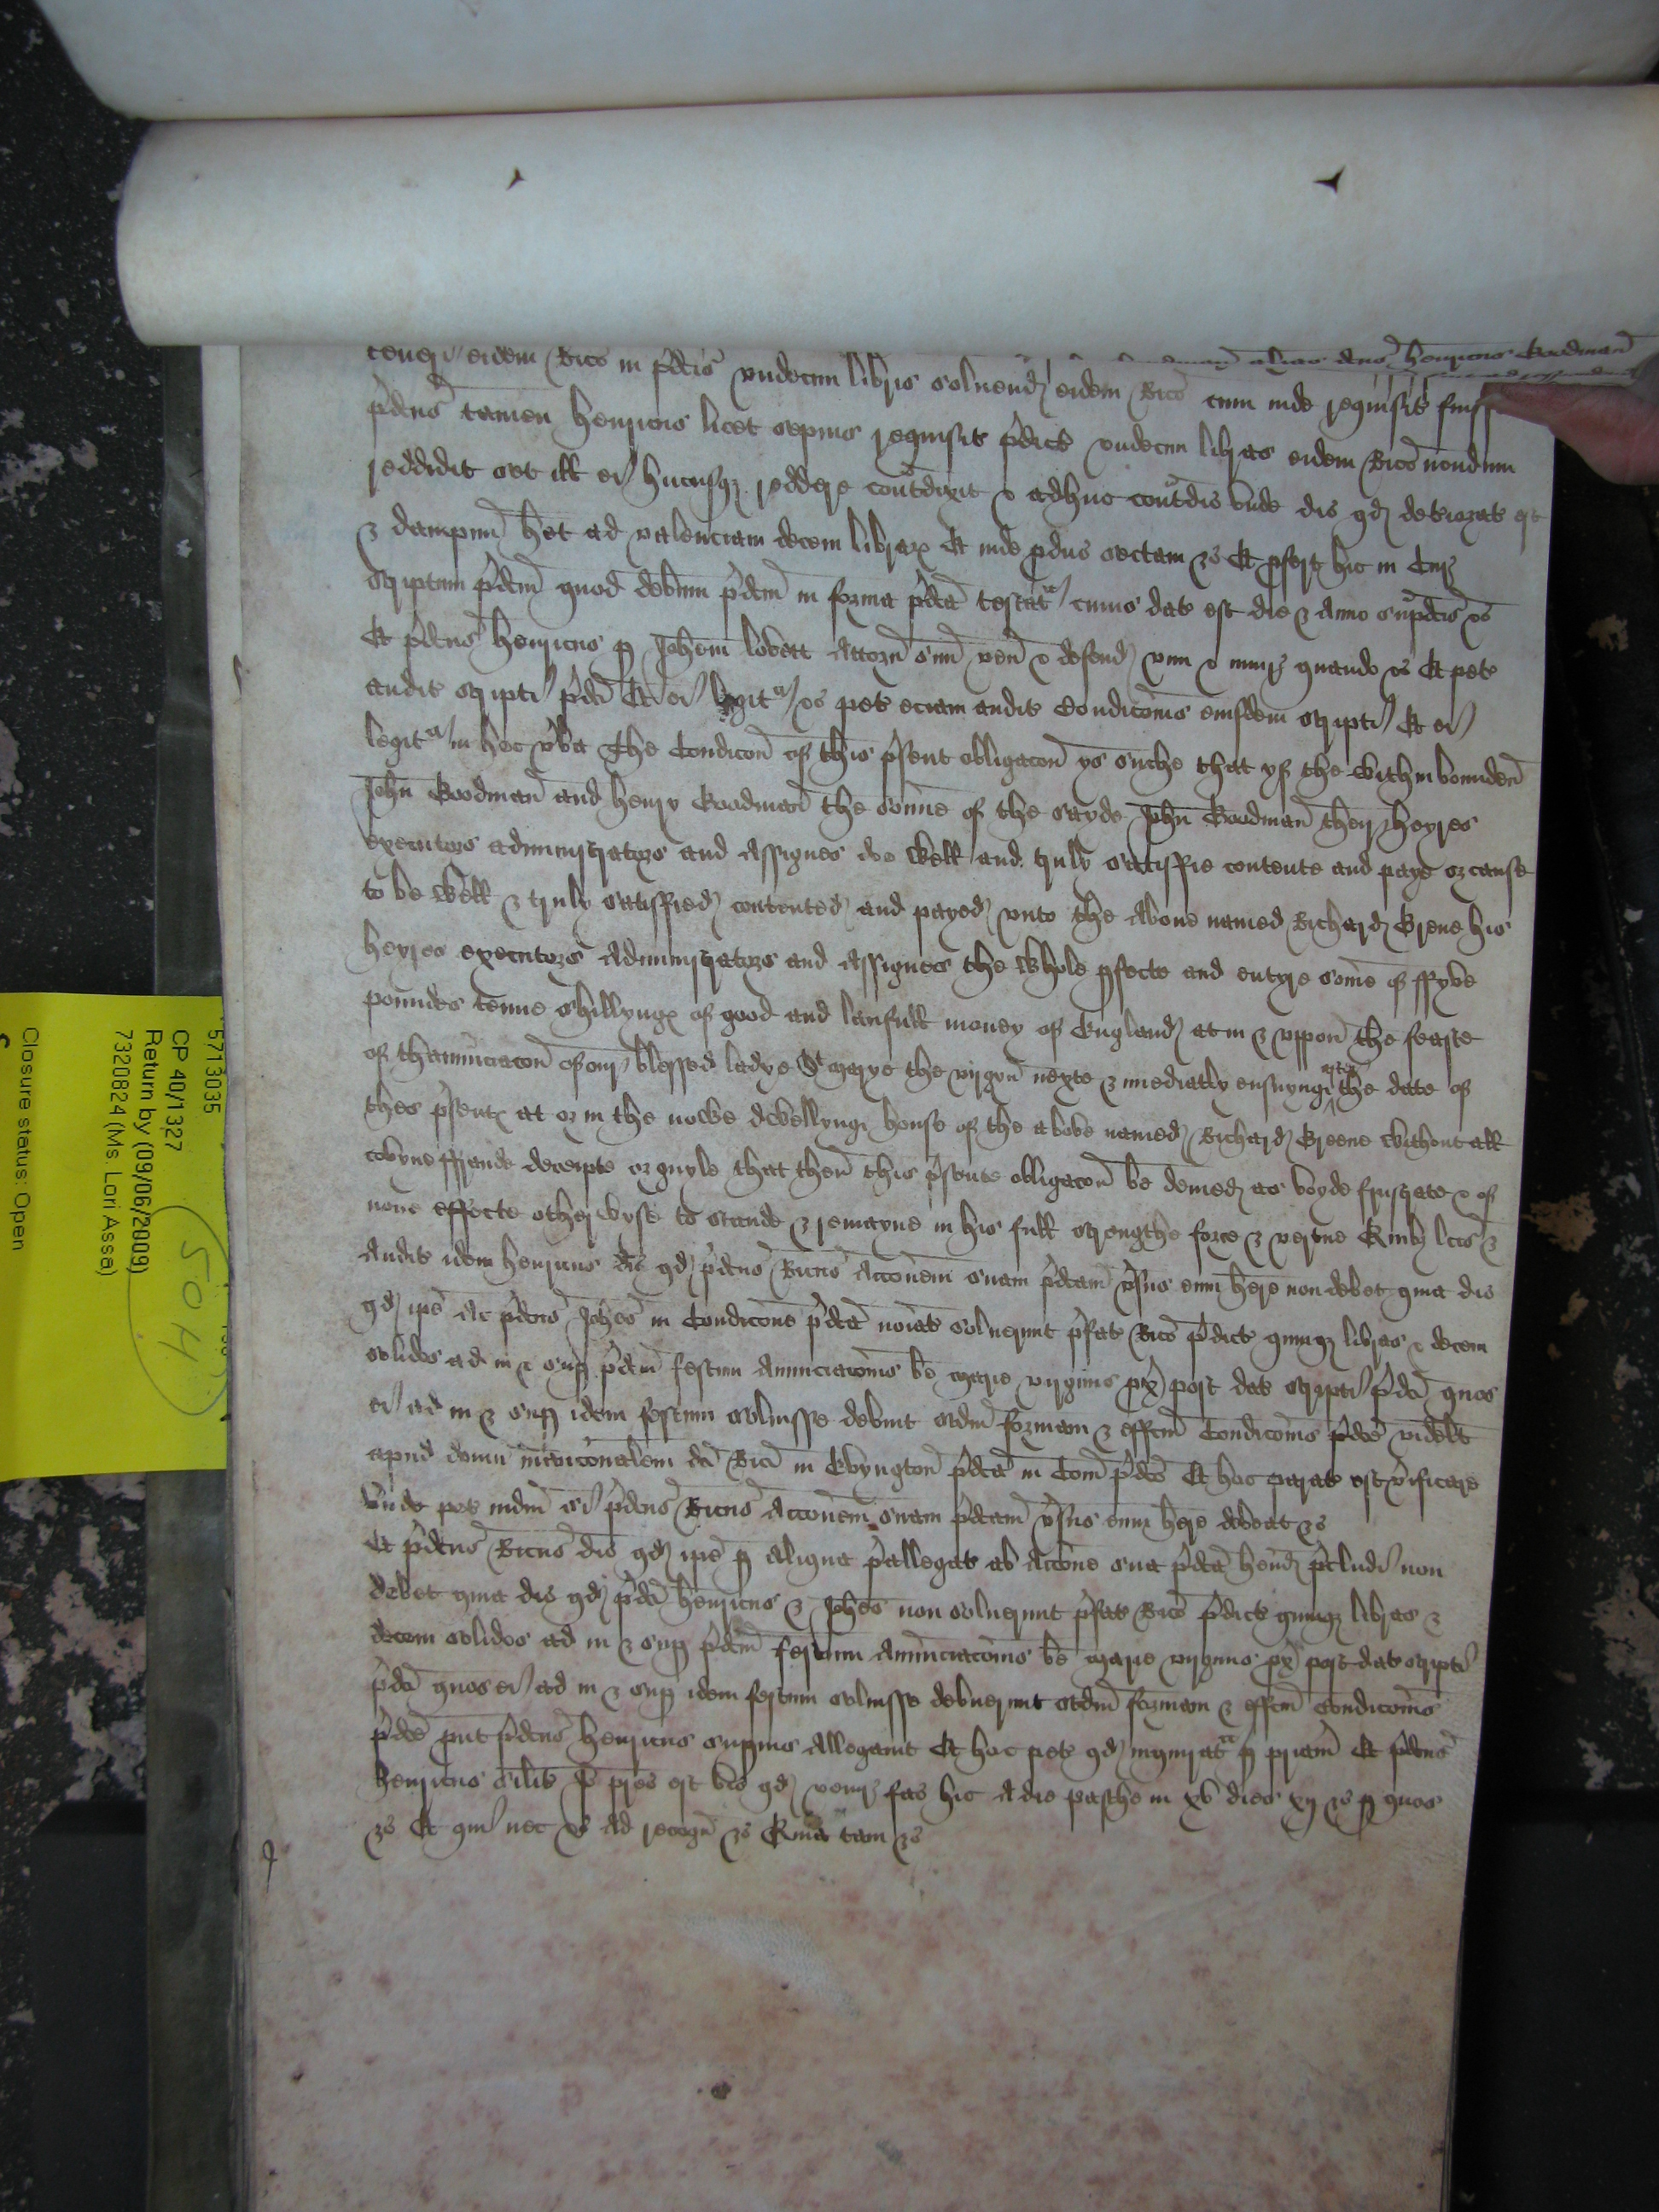 alias dcus henricus Goodman
teneri eidem Rico in pdcis undecim libris solvend eidem Rico cum inde requisit fuiss
pdcus tamen henricus licet sepius requisit pdict undecim libras eidem Rico nondum
reddidit set ill ei hucusq reddere contdixit & adhuc contdic unde dic qd deteriorat est
& dampnu het ad valenciam decem librar Et inde pduc sectam &c Et pfert hic in Cur
scriptum pdcm quod debitum pdcm in forma pdca testatr cuius dat est die & Anno supdcis &c
Et pdcus henricus p Johem lovett Attorn suu ven & defend vim & iniur quando &c Et pet
audit scripti pdci Et ei legitr &c pet eciam audit Condicois eiusdem scripti Et ei
legitr in hec vba The Condicon of this psent obligacon ys suche that yf the within bounden
John Goodman and henry Goodman the sonne of the sayde John Goodman their heyres
executors administrators and Assignes do well and truly satisffie contente and paye or cause
to be well & truly satisffied contented and payed unto the Above named Richard Grene his
heyres executors Administrators and Assignes the whole pfecte and entyre some of ffyve
poundes tenne shillyngs of good and laufull money of England at in & uppon the feaste
of thanunciacon of our blessed ladye St marye the virgyn nexte & imediatly ensuyng after the date of
thes psents at or in the nowe dwellyng house of the above named Richard Greene without all
covyne ffraude deceipte or guyle that then this psente obligacon be demed as voyde frustrate & of
none effecte otherwyse to stande & remayne in his full strengthe force & vertue Quib lcis &
Audit idem henricus dic qd pdcus Ricus Acconem suam pdcam vsus eum here non debet quia dic
qd ipe Ac pdcus Johes in Condicone pdca noiat solverunt pfat Rico pdict quinq libras & decem
solidos ad in & sup pdcm festum Anunciacois be marie virginis px post dat scripti pdci quos
ei ad in & sup idem festum solvisse debuit scdm formam & effcm Condicois pdce videlt
apud domu mansionalem dci Rici in Evyngton pdca in Com pdco Et hoc parat est vificare
unde pet iudm si pdcus Ricus Acconem suam pdcam vsus eum here debeat &c
Et pdcus Ricus dic qd ipe p Aliqua pallegat ab Accone sua pdca hend pcludi non
debet quia dic qd pdci henricus & Johes non solverunt pfat Rico pdict quinq libras &
decem solidos ad in & sup pdcm festum Anunciacois be marie virginis px post dat scripti
pdci quos ei ad in & sup idem festum solvisse debuerunt scdm formam & effcm Condicois
pdce put pdcus henricus supius Allegavit Et hoc pet qd inquiratr p priam Et pdcus
henricus silit Io pc est vic qd venir fac hic A die pasche in xv dies xij &c p quos
&c Et qui nec &c Ad recogn &c Quia tam &c
5713035
CP 40/1327
Return by (09/06/2009)
7320824 (Ms. Lori Asse)
Closure status: Open
504